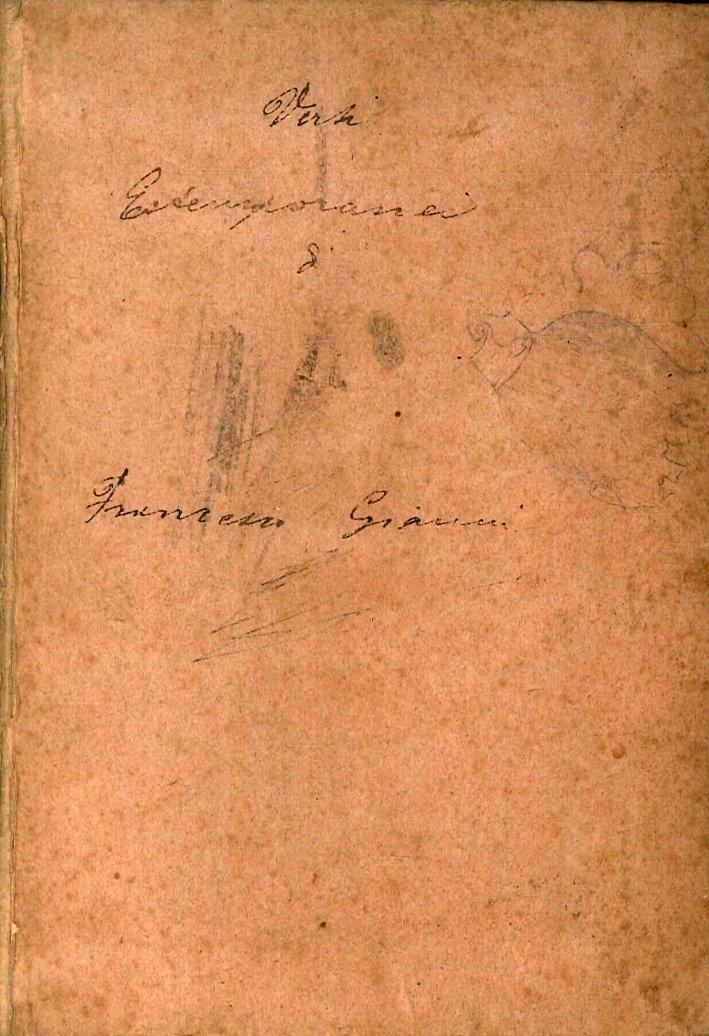 Versi
Estemporanei
di
Francesco Gianni